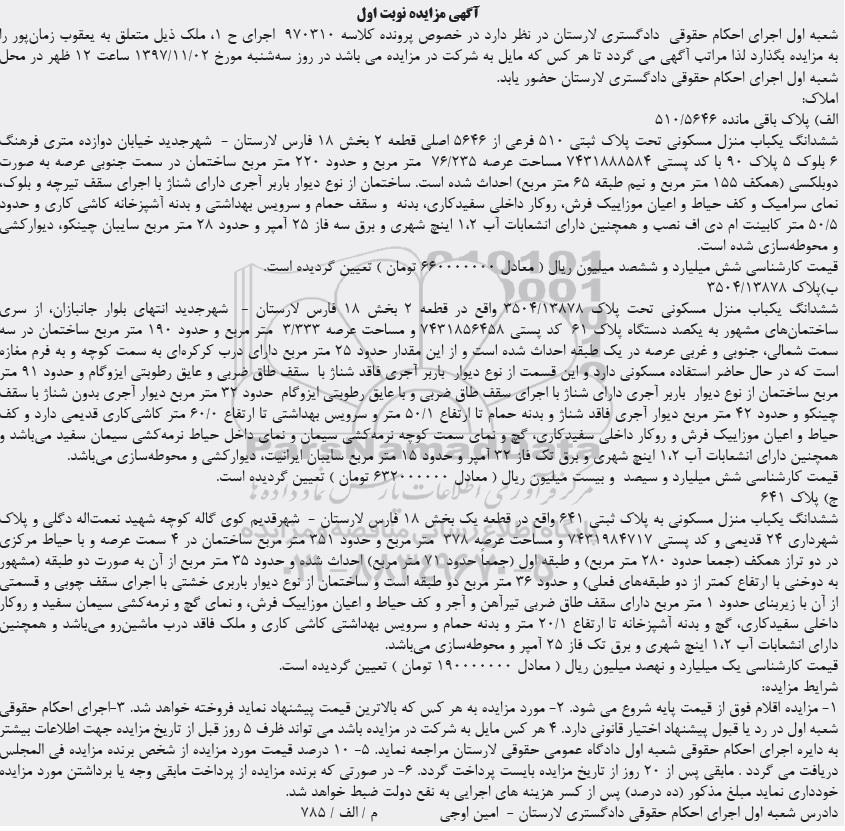 آگهی مزایده نوبت اول
شعبه اول اجرای احکام حقوقی دادگستری لارستان در نظر دارد در خصوص پرونده کلاسه ۹۷۰۳۱۰ اجرای ح ۱، ملک ذیل متعلق به یعقوب زمان‌پور را
به مزایده بگذارد لذا مراتب آگهی می گردد تا هر کس که مایل به شرکت در مزایده می باشد در روز سه‌شنبه مورخ ۱۳۹۷/۱۱/۰۲ ساعت ۱۲ ظهر در محل
شعبه اول اجرای احکام حقوقی دادگستری لارستان حضور یابد.
املاک:
الف) پلاک باقی مانده ۵۱۰/۵۶۴۶
ششدانگ یکباب منزل مسکونی تحت پلاک ثبتی ۵۱۰ فرعی از ۵۶۴۶ اصلی قطعه ۲ بخش ۱۸ فارس لارستان - شهرجدید خیابان دوازده متری فرهنگ
۶ بلوک ۵ پلاک ۹۰ با کد پستی ۷۴۳۱۸۸۸۵۸۴ مساحت عرصه ۷۶/۲۳۵ متر مربع و حدود ۲۲۰ متر مربع ساختمان در سمت جنوبی عرصه به صورت
دوبلکسی (همکف ۱۵۵ متر مربع و نیم طبقه ۶۵ متر مربع) احداث شده است. ساختمان از نوع دیوار باربر آجری دارای شناژ با اجرای سقف تیرچه و بلوک،
نمای سرامیک و کف حیاط و اعیان موزاییک فرش، روکار داخلی سفیدکاری، بدنه و سقف حمام و سرویس بهداشتی و بدنه آشپزخانه کاشی کاری و حدود
۵۰/۵ متر کابینت ام دی اف نصب و همچنین دارای انشعابات آب ۱،۲ اینچ شهری و برق سه فاز ۲۵ آمپر و حدود ۲۸ متر مربع سایبان چینکو، دیوارکشی
و محوطه‌سازی شده است.
قیمت کارشناسی شش میلیارد و ششصد میلیون ریال ( معادل ۶۶۰۰۰۰۰۰۰ تومان ) تعیین گردیده است.
ب)پلاک ۳۵۰۴/۱۳۸۷۸
ششدانگ یکباب منزل مسکونی تحت پلاک ۳۵۰۴/۱۳۸۷۸ واقع در قطعه ۲ بخش ۱۸ فارس لارستان - شهرجدید انتهای بلوار جانبازان، از سری
ساختمان‌های مشهور به یکصد دستگاه پلاک ۶۱ کد پستی ۷۴۳۱۸۵۶۴۵۸ و مساحت عرصه ۳/۳۳۳ متر مربع و حدود ۱۹۰ متر مربع ساختمان در سه
سمت شمالی، جنوبی و غربی عرصه در یک طبقه احداث شده است و از این مقدار حدود ۲۵ متر مربع دارای درب کرکره‌ای به سمت کوچه و به فرم مغازه
است که در حال حاضر استفاده مسکونی دارد و این قسمت از نوع دیوار باربر آجری فاقد شناژ با سقف طاق ضربی و عایق رطوبتی ایزوگام و حدود ۹۱ متر
مربع ساختمان از نوع دیوار باربر آجری دارای شناژ با اجرای سقف طاق ضربی و با عایق رطوبتی ایزوگام حدود ۳۲ متر مربع دیوار آجری بدون شناژ با سقف
چینکو و حدود ۴۲ متر مربع دیوار آجری فاقد شناژ و بدنه حمام تا ارتفاع ۵۰/۱ متر و سرویس بهداشتی تا ارتفاع ۶۰/۰ متر کاشی‌کاری قدیمی دارد و کف
حیاط و اعیان موزاییک فرش و روکار داخلی سفیدکاری، گچ و نمای سمت کوچه نرمه‌کشی سیمان و نمای داخل حیاط نرمه‌کشی سیمان سفید می‌باشد و
همچنین دارای انشعابات آب ۱،۲ اینچ شهری و برق تک فاز ۳۲ آمپر و حدود ۱۵ متر مربع سایبان ایرانیت، دیوارکشی و محوطه‌سازی می‌باشد.
قیمت کارشناسی شش میلیارد و سیصد و بیست میلیون ریال ( معادل ۶۳۲۰۰۰۰۰۰ تومان ) تعیین گردیده است.
ج) پلاک ۶۴۱
ششدانگ یکباب منزل مسکونی به پلاک ثبتی ۶۴۱ واقع در قطعه یک بخش ۱۸ فارس لارستان - شهرقدیم کوی گاله کوچه شهید نعمت‌اله دگلی و پلاک
شهرداری ۲۴ قدیمی و کد پستی ۷۴۳۱۹۸۴۷۱۷ و مساحت عرصه ۳۷۸ متر مربع و حدود ۳۵۱ متر مربع ساختمان در ۴ سمت عرصه و با حیاط مرکزی
در دو تراز همکف (جمعا حدود ۲۸۰ متر مربع) و طبقه اول (جمعاً حدود ۷۱ متر مربع) احداث شده و حدود ۳۵ متر مربع از آن به صورت دو طبقه (مشهور
به دوخنی با ارتفاع کمتر از دو طبقه‌های فعلی) و حدود ۳۶ متر مربع دو طبقه است و ساختمان از نوع دیوار باربری خشتی با اجرای سقف چوبی و قسمتی
از آن با زیربنای حدود ۱ متر مربع دارای سقف طاق ضربی تیرآهن و آجر و کف حیاط و اعیان موزاییک فرش، و نمای گچ و نرمه‌کشی سیمان سفید و روکار
داخلی سفیدکاری، گچ و بدنه آشپزخانه تا ارتفاع ۲۰/۱ متر و بدنه حمام و سرویس بهداشتی کاشی کاری و ملک فاقد درب ماشین‌رو می‌باشد و همچنین
دارای انشعابات آب ۱،۲ اینچ شهری و برق تک فاز ۲۵ آمپر و محوطه‌سازی می‌باشد.
قیمت کارشناسی یک میلیارد و نهصد میلیون ریال ( معادل ۱۹۰۰۰۰۰۰۰ تومان ) تعیین گردیده است.
شرایط مزایده:
۱- مزایده اقلام فوق از قیمت پایه شروع می شود. ۲- مورد مزایده به هر کس که بالاترین قیمت پیشنهاد نماید فروخته خواهد شد. ۳-اجرای احکام حقوقی
شعبه اول در رد یا قبول پیشنهاد اختیار قانونی دارد. ۴ هر کس مایل به شرکت در مزایده باشد می تواند ظرف ۵ روز قبل از تاریخ مزایده جهت اطلاعات بیشتر
به دایره اجرای احکام حقوقی شعبه اول دادگاه عمومی حقوقی لارستان مراجعه نماید. ۵- ۱۰ درصد قیمت مورد مزایده از شخص برنده مزایده فی المجلس
دریافت می گردد . مابقی پس از ۲۰ روز از تاریخ مزایده بایست پرداخت گردد. ۶- در صورتی که برنده مزایده از پرداخت مابقی وجه یا برداشتن مورد مزایده
خودداری نماید مبلغ مذکور (ده درصد) پس از کسر هزینه های اجرایی به نفع دولت ضبط خواهد شد.
دادرس شعبه اول اجرای احکام حقوقی دادگستری لارستان - امین اوجی م / الف / ۷۸۵